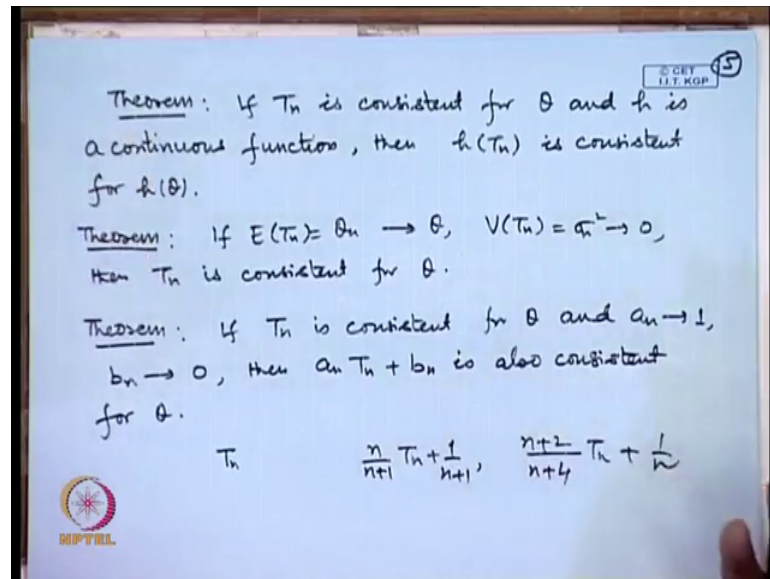 © CET
I.I.T. KGP
5
Theorem: If Tn is consistent for θ and h is
a continuous function, then h(Tn) is consistent
for h(θ).
Theorem: If E(Tn) = θn → θ, V(Tn) = σn² → 0,
then Tn is consistent for θ.
Theorem: If Tn is consistent for θ and an → 1,
bn → 0, then an Tn + bn is also consistent
for θ.
Tn n/n+1 Tn + 1/n+1, n+2/n+4 Tn + 1/n
NPTEL